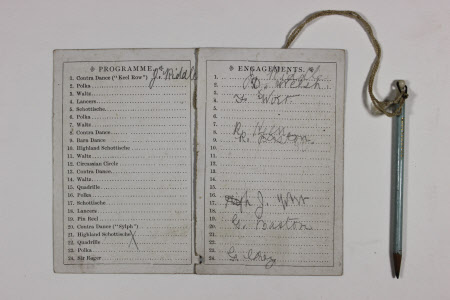 PROGRAMME.
1. Contra Dance ("Keel Row") J. Riddle
2. Polka
3. Waltz
4. Lancers
5. Schottische
6. Polka
7. Waltz
8. Contra Dance
9. Barn Dance
10. Highland Schottische
11. Waltz
12. Circassian Circle
13. Contra Dance
14. Waltz
15. Quadrille
16. Polka
17. Schottische
18. Lancers
19. Pin Reel
20. Contra Dance ("Sylph")
21. Highland Schottische
22. Quadrille X
23. Polka
24. Sir Roger
ENGAGEMENTS.
1.
2. D. Welsh
3.
4.
5.
6.
7.
8. R.
9. R.
10.
11.
12.
13.
14.
15.
16.
17. J.
18.
19. G. Easton
20.
21.
22.
23.
24.